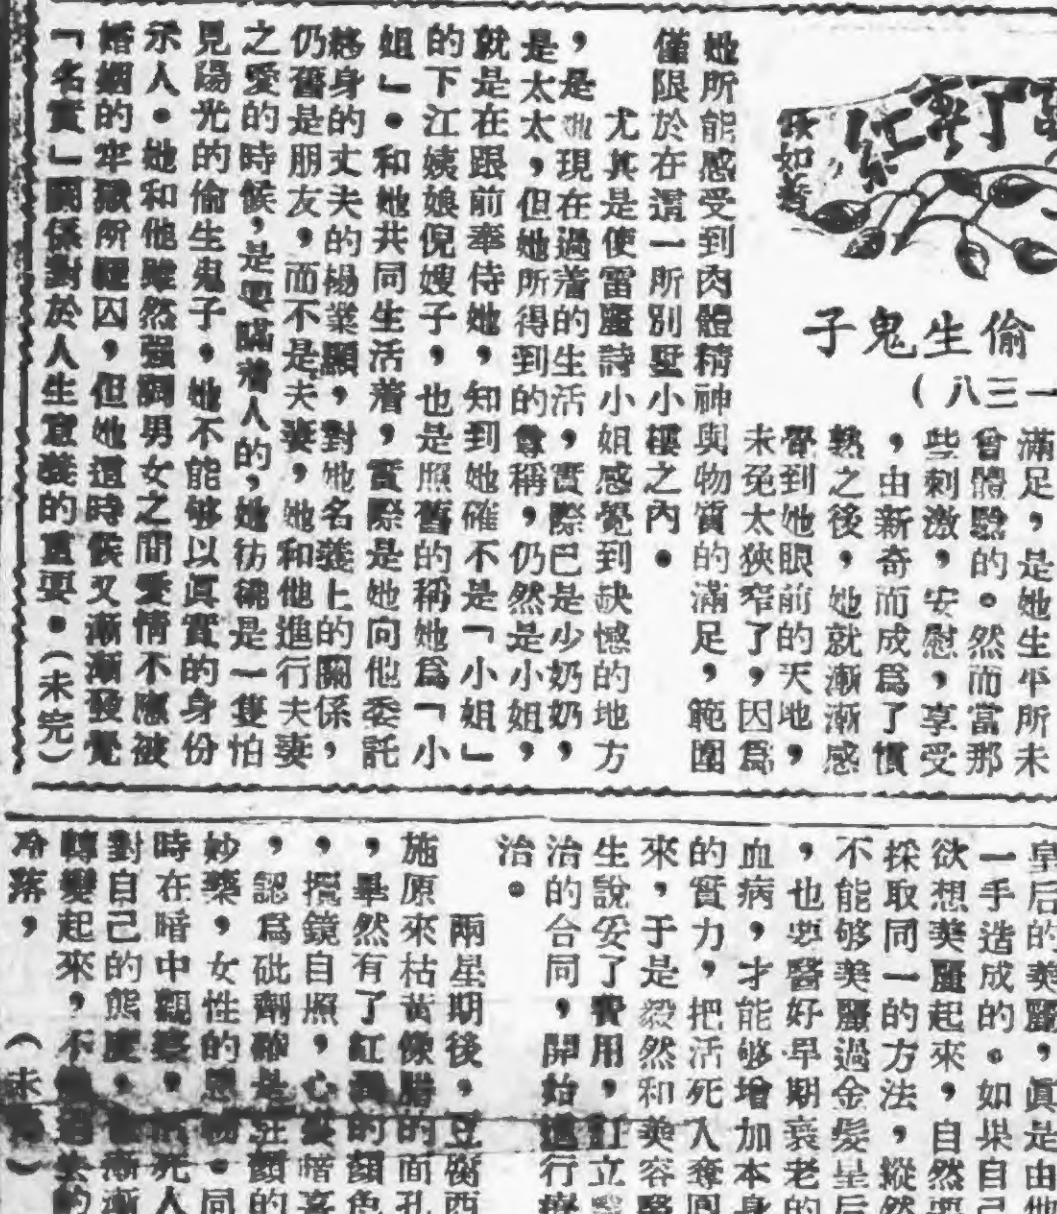 如著
偷生鬼子
一三八）
滿足，是她生平所未
曾體驗的。然而當那
些刺激，安慰，享受
，由新奇而成爲了慣
熟之後，她就漸漸感
覺到她眼前的天地，
未免太狹窄了，因爲
她所能感受到肉體精神與物質的滿足，範圍
僅限於在這一所別墅小樓之內。
尤其是使雷麗詩小姐感覺到缺憾的地方
，是她現在過着的生活，實際巳是少奶奶，
是太太，但她所得到的尊稱，仍然是小姐，
就是在跟前奉侍她，知到她確不是「小姐」
的下江姨娘倪嫂子，也是照舊的稱她爲「小
姐」。和她共同生活着，實際是她向他委託
終身的丈夫的楊業顯，對她名義上的關係，
仍舊是朋友，而不是夫妻，她和他進行夫妻
之愛的時候，是要瞞着人的，她彷彿是一隻怕
見陽光的偷生鬼子，她不能够以眞實的身份
示人。她和他雖然强調男女之間愛情不應被
婚姻的牢獄所囚，但她這時候又漸漸發覺
「名實」關係對於人生意義的重要。（未完）
皇后的美麗，眞是由他
一手造成的。如果自己
欲想美麗起來，自然要
採取同一的方法，縱然
不能够美麗過金髮皇后
，也要醫好早期衰老的
血病，才能够增加本身
的實力，把活死人奪回
來，于是毅然和美容醫
生說妥了費用，訂立醫
治的合同，開始進行療
治。
兩星期後，豆腐西
施原來枯黃像腊的面孔
，畢然有了紅的顏色
，攬鏡自照，心暗喜
，認爲砒劑確是顏的
妙藥，女性的恩物。同
時在暗中觀察，活死人
對自己的態度，漸漸
轉變起來，不過去的
冷落，（未）